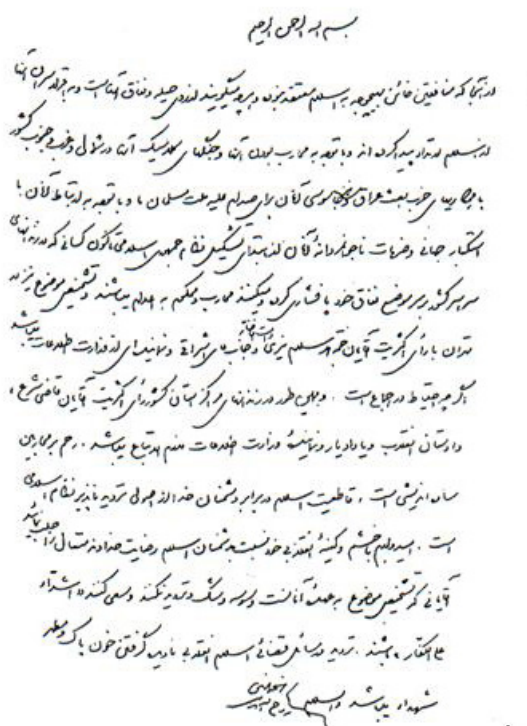 بسم الله الرحمن الرحیم
از آنجا که منافقین خائن بهیچوجه به اسلام معتقد نبوده و هر چه میگویند از روی حیله و نفاق آنهاست و به اقرار سران آنها
از اسلام ارتداد پیدا کرده اند و با توجه به محارب بودن آنها و جنگهای کلاسیک آنها در شمال و غرب و جنوب کشور
با همکاریهای حزب بعث عراق و نیز جاسوسی آنان برای صدام علیه ملت مسلمان ما و با توجه به ارتباط آنان با
استکبار جهانی و ضربات ناجوانمردانه آنان از ابتدای تشکیل نظام جمهوری اسلامی تا کنون کسانی که در زندانهای
سراسر کشور بر سر موضع نفاق خود پافشاری کرده و میکنند محارب و محکوم به اعدام میباشند و تشخیص موضوع نیز در
تهران با رأی اکثریت آقایان حجة الاسلام نیری دامت افاضاته و جناب آقای اشراقی و نماینده ای از وزارت اطلاعات میباشد
اگر چه احتیاط در اجماع است . و همین طور در زندانهای مراکز استان کشور رأی اکثریت آقایان قاضی شرع ،
دادستان انقلاب و یا دادیار و نماینده وزارت اطلاعات لازم الاتباع میباشد . رحم بر محاربین
ساده اندیشی است ، قاطعیت اسلام در برابر دشمنان خدا از اصول تردید ناپذیر نظام اسلامی
است . امیدوارم با خشم و کینه انقلابی خود نسبت به دشمنان اسلام رضایت خداوند متعال را جلب نمائید
آقایانی که تشخیص موضوع به عهده آنان است وسوسه و شک و تردید نکنند و سعی کنند « اشداء
علی الکفار » باشند . تردید در مسائل قضائی اسلام انقلابی نادیده گرفتن خون پاک و مطهر
شهداء میباشد والسلام
روح الله الموسوی الخمینی